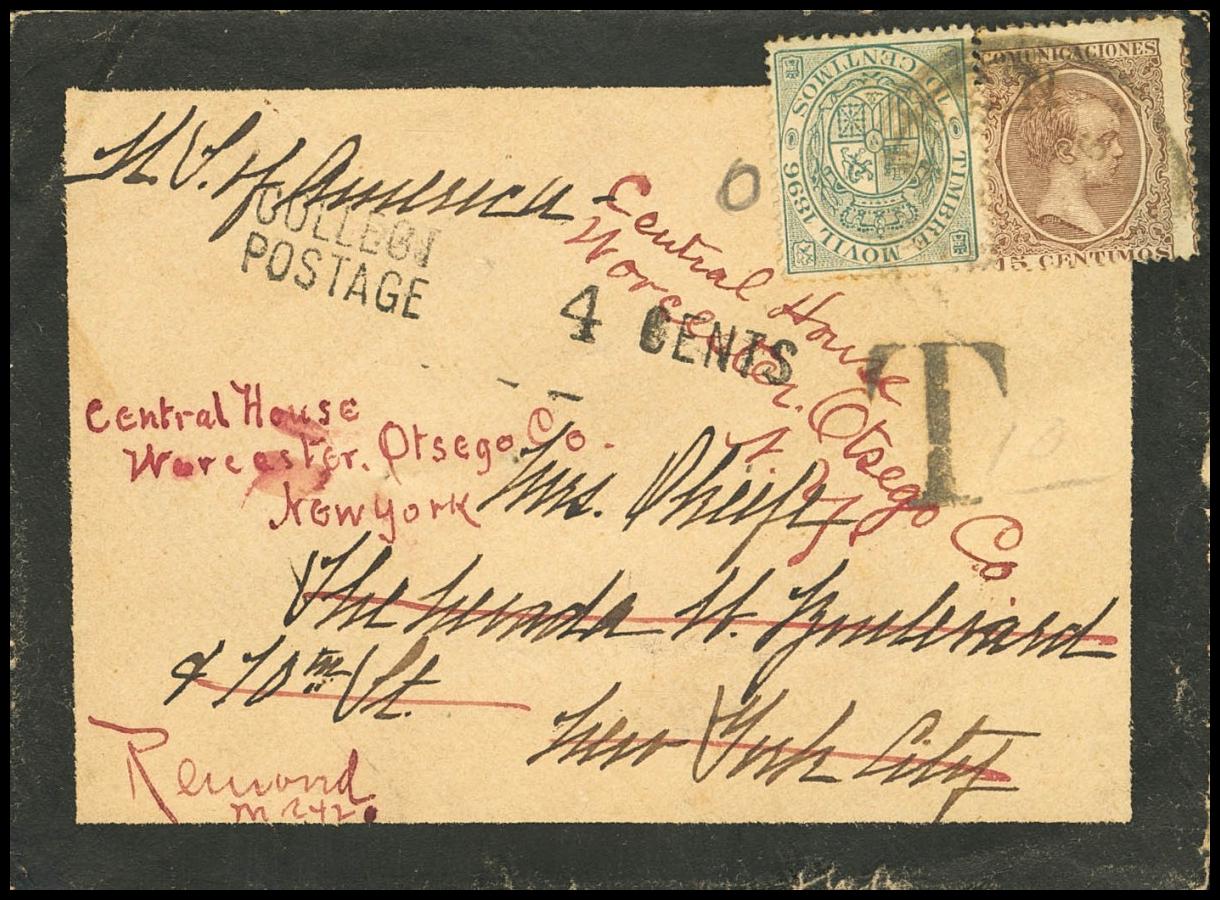 COMUNICACIONES
15 CENTIMOS
TIMBRE MOVIL 1896
10 CENTIMOS
U. S. of America
COLLECT
POSTAGE
0
4 CENTS
T
13
Central House
Worcester, Otsego Co
N. Y.
Central House
Worcester, Otsego Co.
New York
Mrs. Phelps
The Nevada W. Boulevard
& 70th St.
New York City
Remond